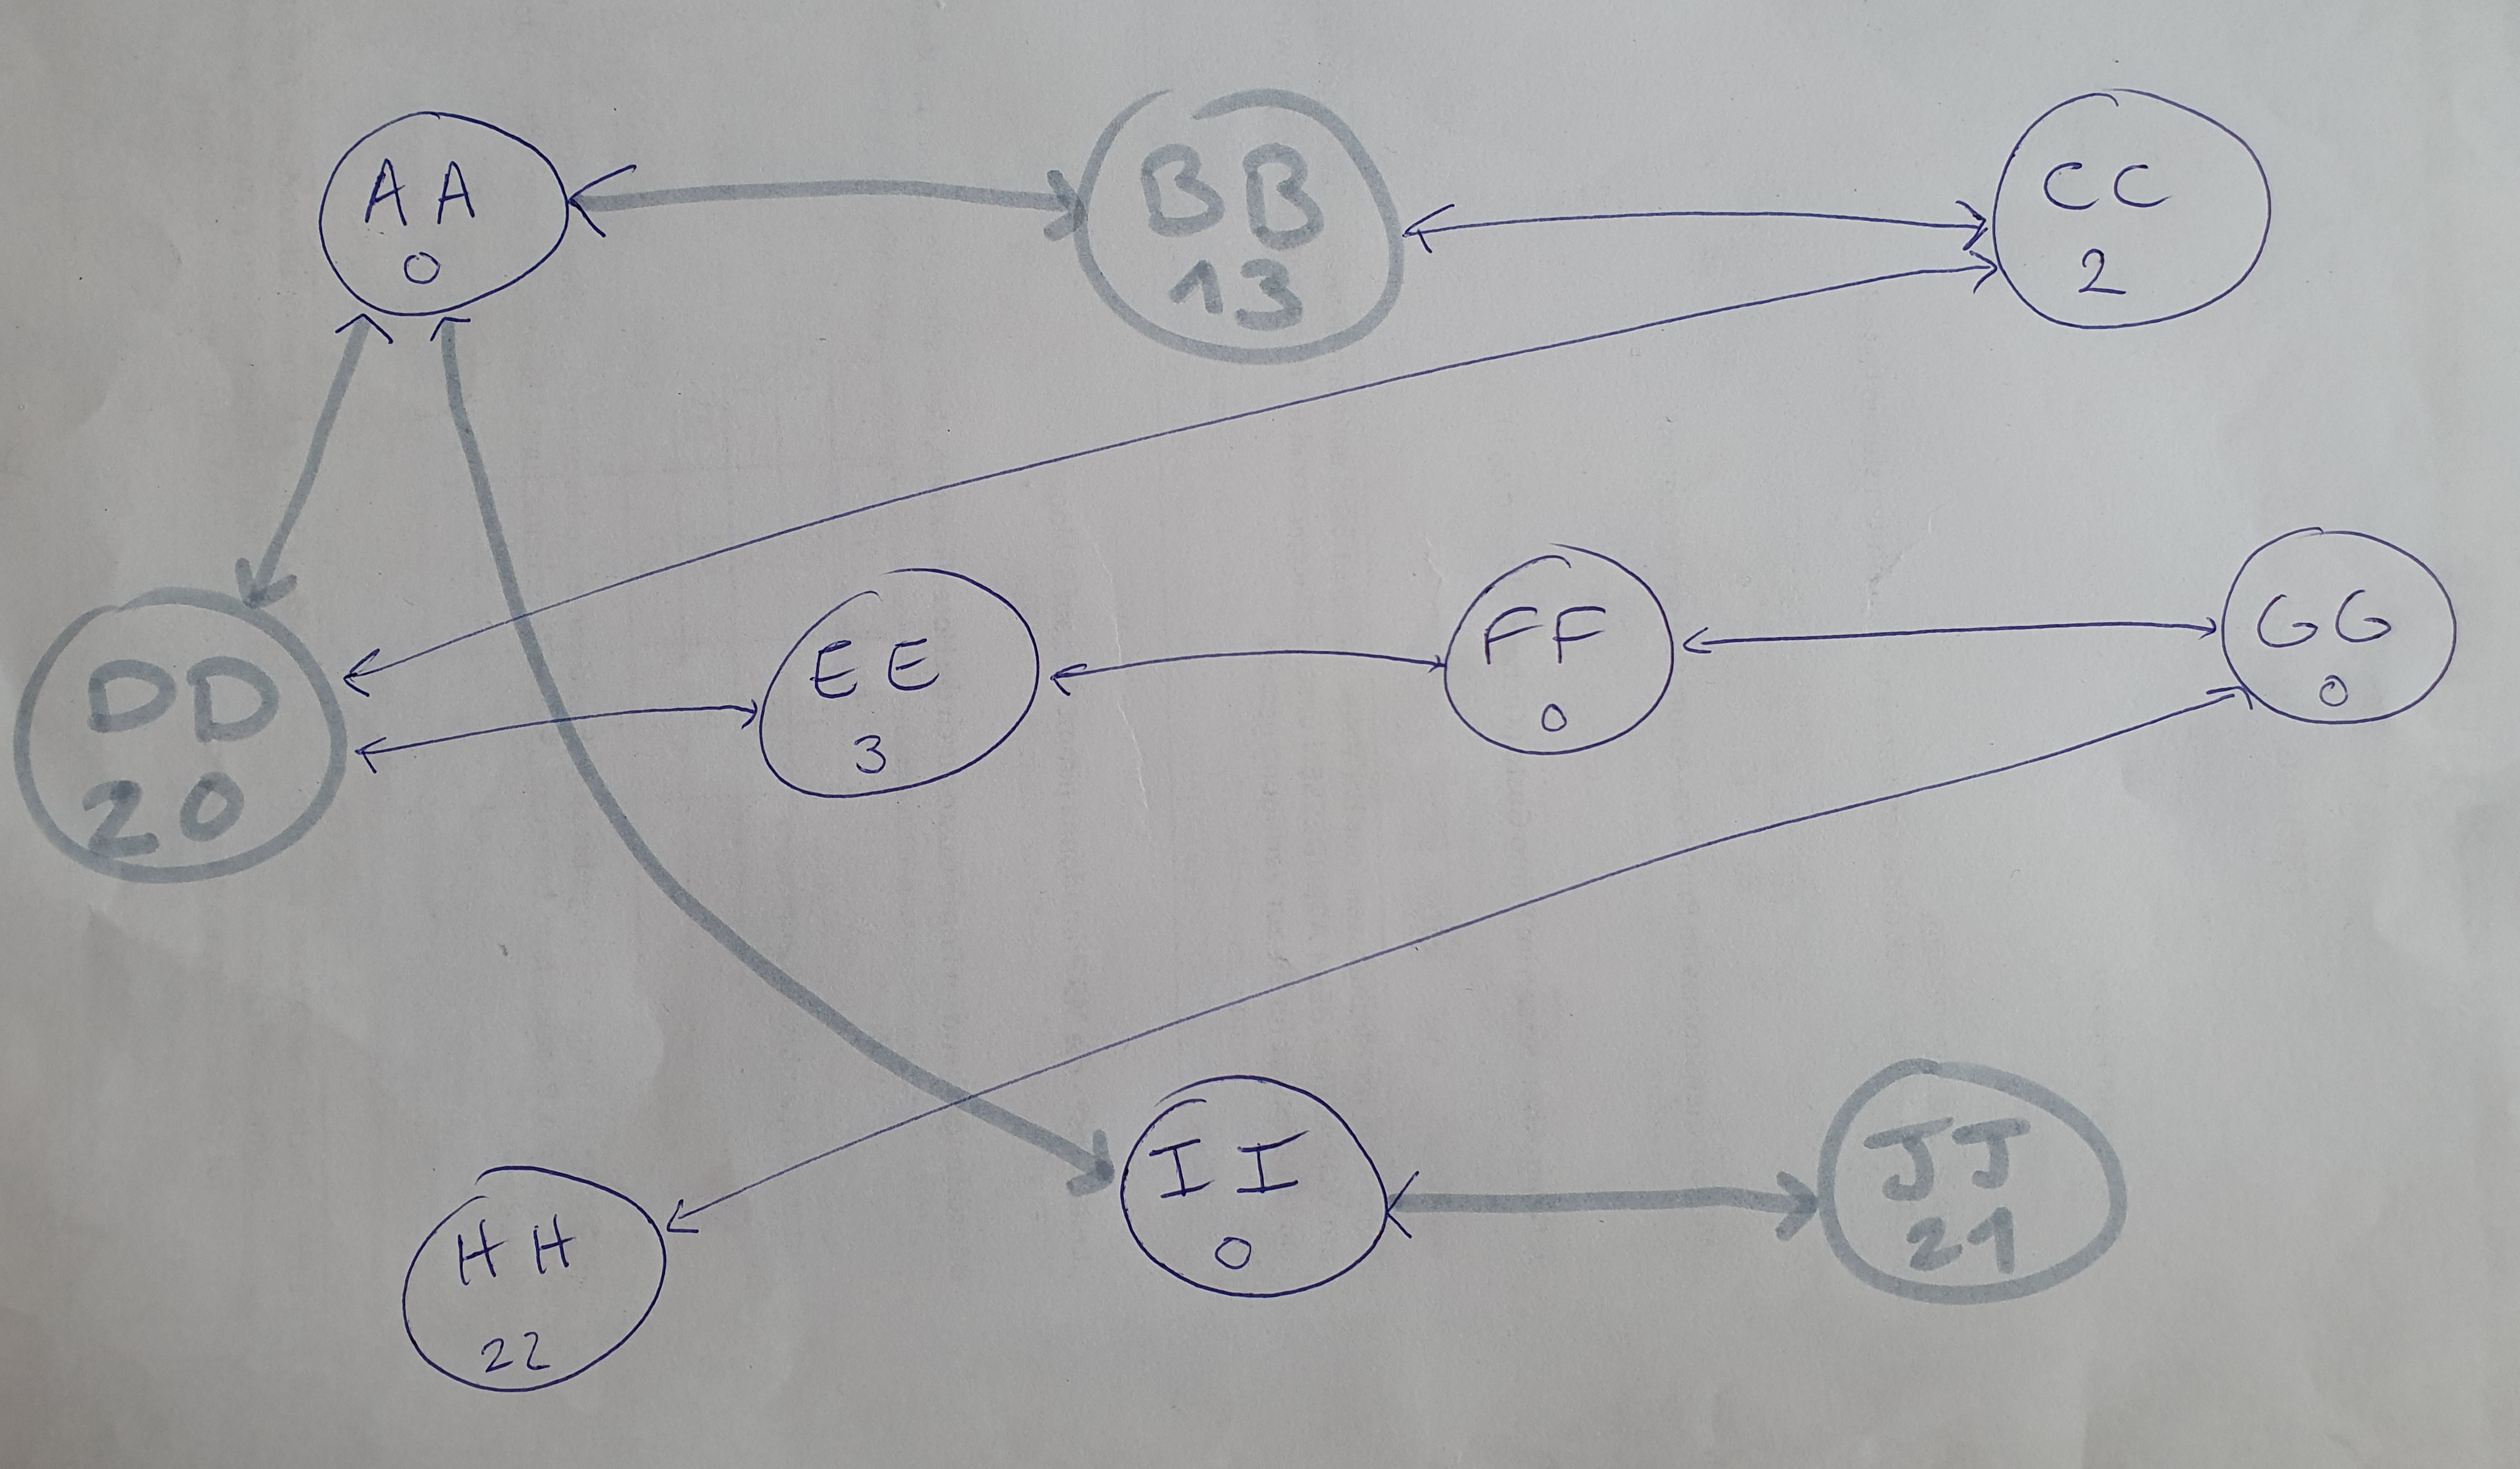 AA
0
BB
13
CC
2
DD
20
EE
3
FF
0
GG
0
HH
22
II
0
JJ
21